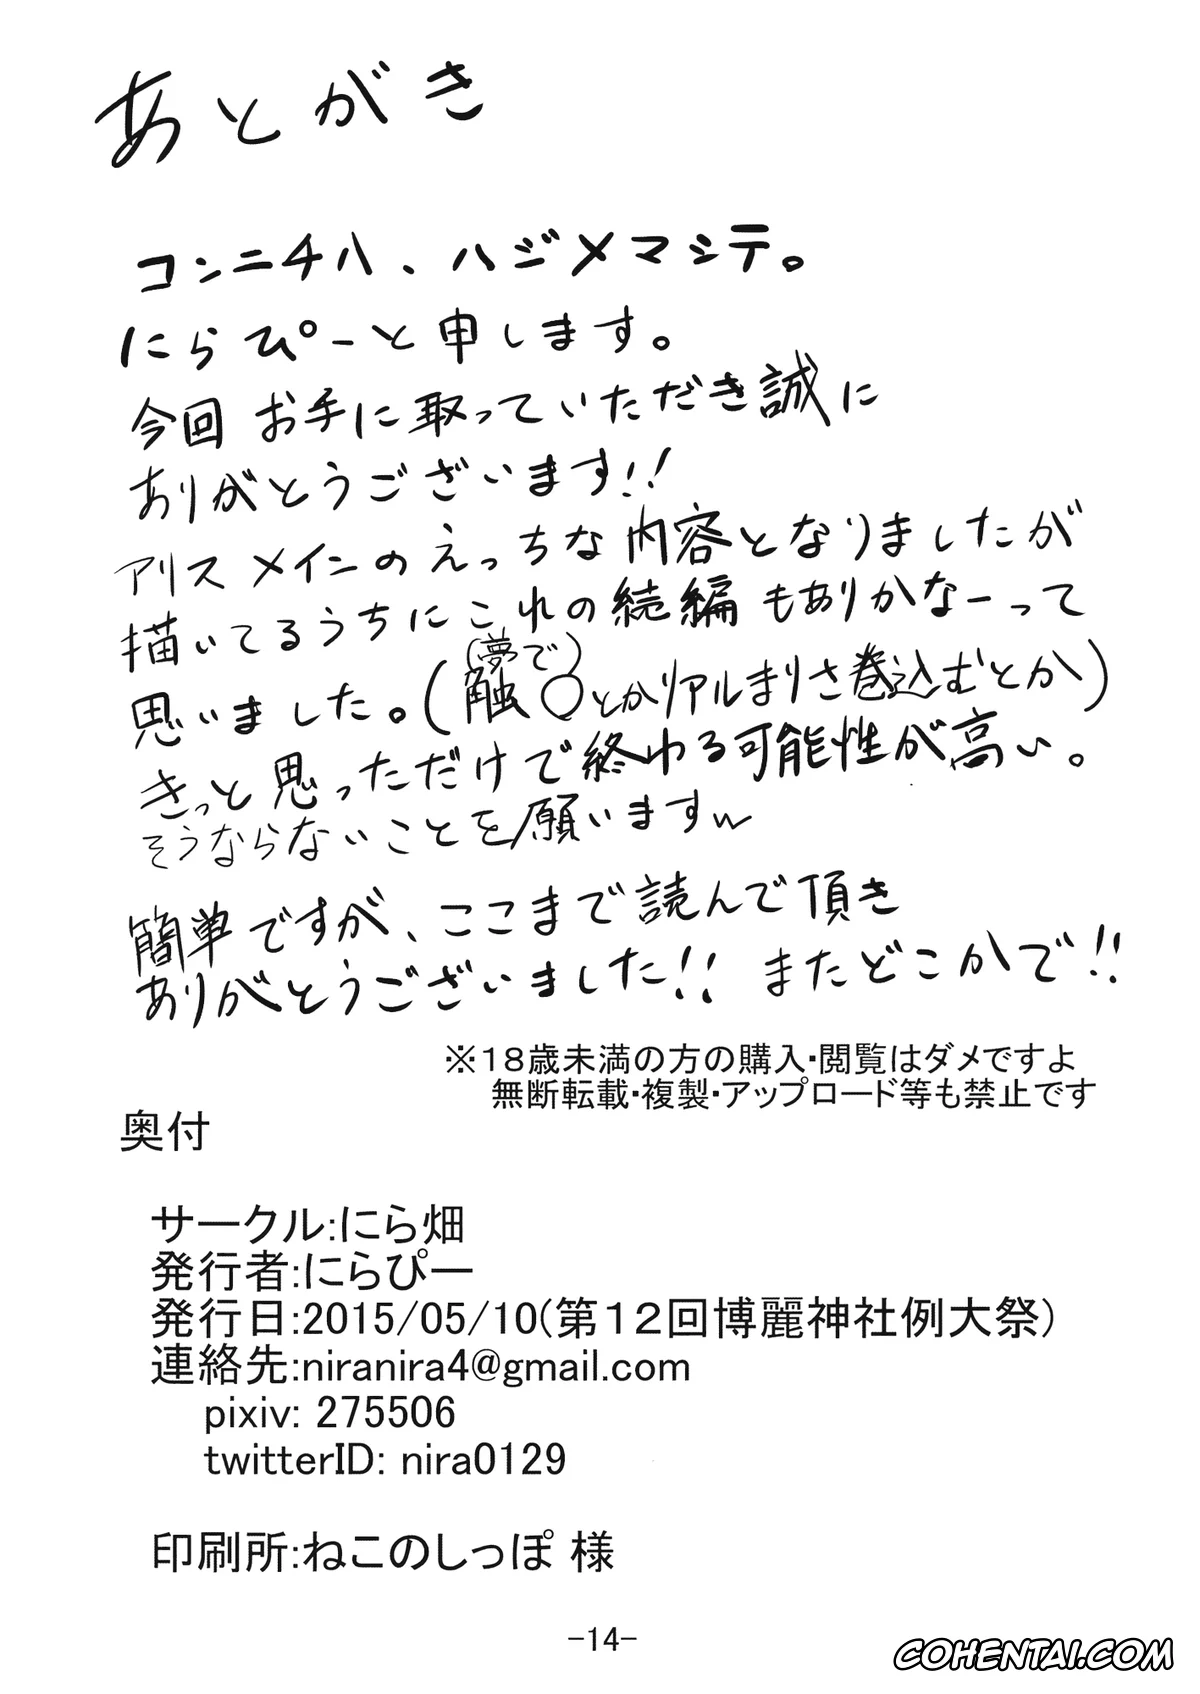 あとがき
コンニチハ、ハジメマシテ。
にらぴーと申します。
今回お手に取っていただき誠に
ありがとうございます!!
アリスメインのえっちな内容となりましたが
描いてるうちにこれの続編もありかなーって
(夢で)
思いました。(触○とかリアルまりさ巻込むとか)
きっと思っただけで終わる可能性が高い。
そうならないことを願いますw
簡単ですが、ここまで読んで頂き
ありがとうございました!! またどこかで!!
※18歳未満の方の購入・閲覧はダメですよ
無断転載・複製・アップロード等も禁止です
奥付
サークル:にら畑
発行者:にらぴー
発行日:2015/05/10(第12回博麗神社例大祭)
連絡先:niranira4@gmail.com
pixiv: 275506
twitterID: nira0129
印刷所:ねこのしっぽ 様
-14-
COHENTAI.COM